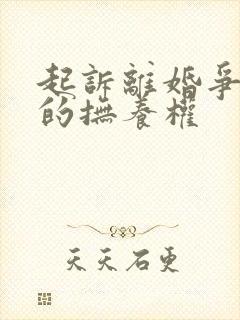 起訴離婚爭
的撫養權
天天石更